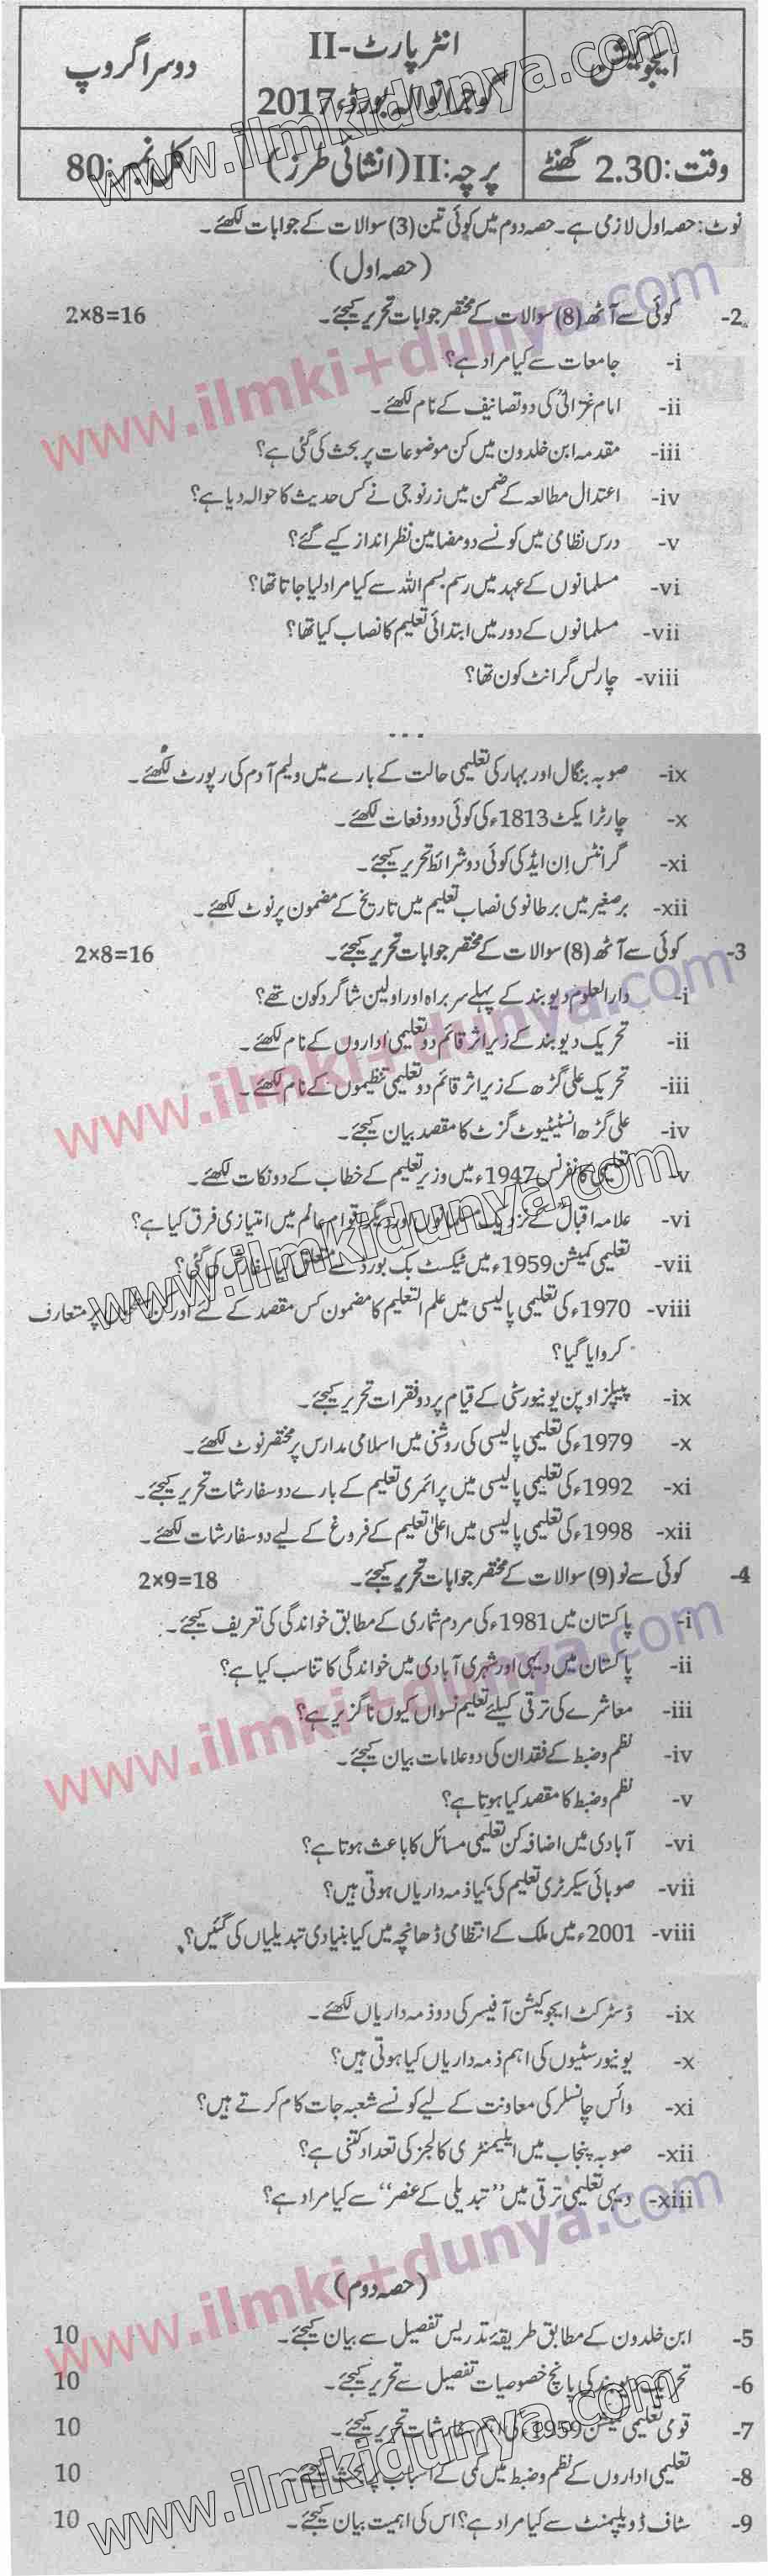 ایجوکیشن
انٹر پارٹ-II
گوجرانوالہ بورڈ، 2017
دوسرا گروپ
وقت: 2.30 گھنٹے
پرچہ: II (انشائی طرز)
کل نمبر: 80
نوٹ: حصہ اول لازمی ہے۔ حصہ دوم میں کوئی تین (3) سوالات کے جوابات لکھئے۔
(حصہ اول)
2- کوئی سے آٹھ (8) سوالات کے مختصر جوابات تحریر کیجئے۔ 2×8=16
i- جامعات سے کیا مراد ہے؟
ii- امام غزالیؒ کی دو تصانیف کے نام لکھئے۔
iii- مقدمہ ابن خلدون میں کن موضوعات پر بحث کی گئی ہے؟
iv- اعتدال مطالعہ کے ضمن میں زرنوجی نے کس حدیث کا حوالہ دیا ہے؟
v- درس نظامی میں کونسے دو مضامین نظر انداز کیے گئے؟
vi- مسلمانوں کے عہد میں رسم بسم اللہ سے کیا مراد لیا جاتا تھا؟
vii- مسلمانوں کے دور میں ابتدائی تعلیم کا نصاب کیا تھا؟
viii- چارلس گرانٹ کون تھا؟
ix- صوبہ بنگال اور بہار کی تعلیمی حالت کے بارے میں ولیم آدم کی رپورٹ لکھئے۔
x- چارٹر ایکٹ 1813ء کی کوئی دو دفعات لکھئے۔
xi- گرانٹس اِن ایڈ کی کوئی دو شرائط تحریر کیجئے۔
xii- برصغیر میں برطانوی نصاب تعلیم میں تاریخ کے مضمون پر نوٹ لکھئے۔
3- کوئی سے آٹھ (8) سوالات کے مختصر جوابات تحریر کیجئے۔ 2×8=16
i- دارالعلوم دیوبند کے پہلے سربراہ اور اولین شاگرد کون تھے؟
ii- تحریک دیوبند کے زیر اثر قائم دو تعلیمی اداروں کے نام لکھئے۔
iii- تحریک علی گڑھ کے زیر اثر قائم دو تعلیمی تنظیموں کے نام لکھئے۔
iv- علی گڑھ انسٹیٹیوٹ گزٹ کا مقصد بیان کیجئے۔
v- تعلیمی کانفرنس 1947ء میں وزیر تعلیم کے خطاب کے دو نکات لکھئے۔
vi- علامہ اقبالؒ کے نزدیک مسلمانوں اور دیگر اقوام عالم میں امتیازی فرق کیا ہے؟
vii- تعلیمی کمیشن 1959ء میں ٹیکسٹ بک بورڈ سے متعلق کیا سفارش کی گئی؟
viii- 1970ء کی تعلیمی پالیسی میں علم التعلیم کا مضمون کس مقصد کے لئے اور کن پر متعارف
کروایا گیا؟
ix- پیپلز اوپن یونیورسٹی کے قیام پر دو فقرات تحریر کیجئے۔
x- 1979ء کی تعلیمی پالیسی کی روشنی میں اسلامی مدارس پر مختصر نوٹ لکھئے۔
xi- 1992ء کی تعلیمی پالیسی میں پرائمری تعلیم کے بارے دو سفارشات تحریر کیجئے۔
xii- 1998ء کی تعلیمی پالیسی میں اعلیٰ تعلیم کے فروغ کے لیے دو سفارشات لکھئے۔
4- کوئی سے نو (9) سوالات کے مختصر جوابات تحریر کیجئے۔ 2×9=18
i- پاکستان میں 1981ء کی مردم شماری کے مطابق خواندگی کی تعریف کیجئے۔
ii- پاکستان میں دیہی اور شہری آبادی میں خواندگی کا تناسب کیا ہے؟
iii- معاشرے کی ترقی کیلئے تعلیم نسواں کیوں ناگزیر ہے؟
iv- نظم و ضبط کے فقدان کی دو علامات بیان کیجئے۔
v- نظم و ضبط کا مقصد کیا ہوتا ہے؟
vi- آبادی میں اضافہ کن تعلیمی مسائل کا باعث ہوتا ہے؟
vii- صوبائی سیکرٹری تعلیم کی کیا ذمہ داریاں ہوتی ہیں؟
viii- 2001ء میں ملک کے انتظامی ڈھانچہ میں کیا بنیادی تبدیلیاں کی گئیں؟
ix- ڈسٹرکٹ ایجوکیشن آفیسر کی دو ذمہ داریاں لکھئے۔
x- یونیورسٹیوں کی اہم ذمہ داریاں کیا ہوتی ہیں؟
xi- وائس چانسلر کی معاونت کے لیے کونسے شعبہ جات کام کرتے ہیں؟
xii- صوبہ پنجاب میں ایلیمنٹری کالجز کی تعداد کتنی ہے؟
xiii- دیہی تعلیمی ترقی میں "تبدیلی کے عنصر" سے کیا مراد ہے؟
(حصہ دوم)
5- ابن خلدون کے مطابق طریقۂ تدریس تفصیل سے بیان کیجئے۔ 10
6- تحریک دیوبند کی پانچ خصوصیات تفصیل سے تحریر کیجئے۔ 10
7- قومی تعلیمی کمیشن 1959ء کی اہم سفارشات تحریر کیجئے۔ 10
8- تعلیمی اداروں کے نظم و ضبط میں کمی کے اسباب پر بحث کیجئے۔ 10
9- سٹاف ڈویلپمنٹ سے کیا مراد ہے؟ اس کی اہمیت بیان کیجئے۔ 10
www.ilmkidunya.com
www.ilmki+dunya.com
www.ilmki+dunya.com
www.ilmkidunya.com
www.ilmki+dunya.com
www.ilmki+dunya.com
www.ilmkidunya.com